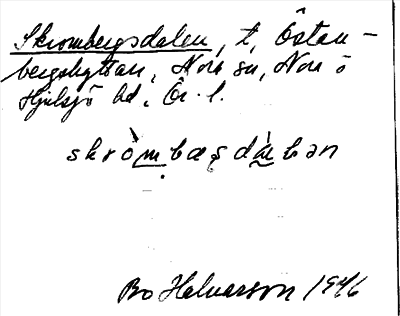 Skrombergsdalen, t, Östan-
bergshyttan, Nora sn, Nora o
Hjulsjö hd, Ör. l.
skròmbæşdàɩən
Bo Halvarson 1946